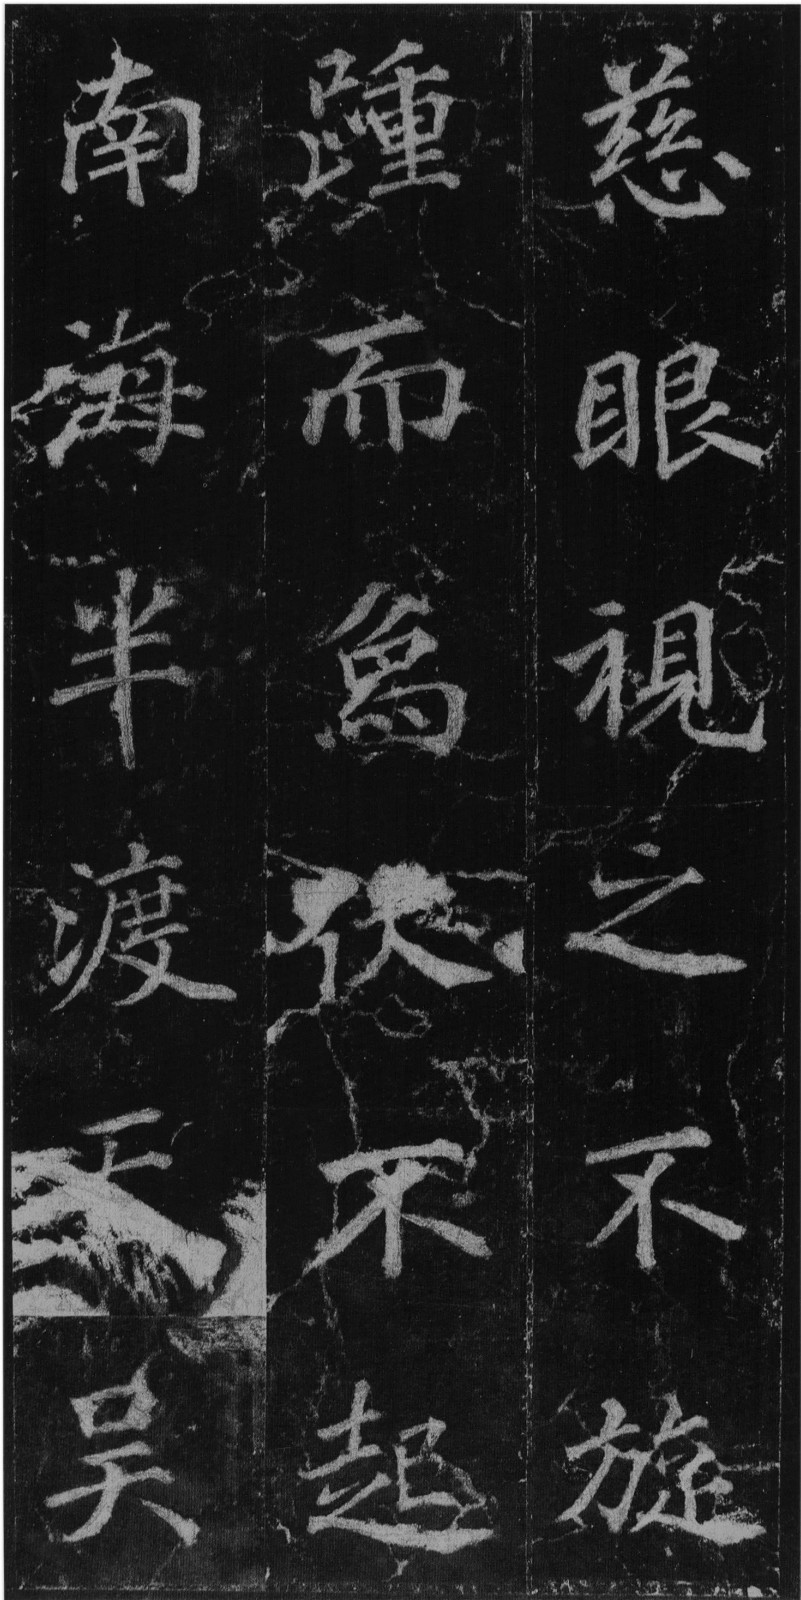 慈眼視之不旋
踵而為伏不起
南海半渡天吳